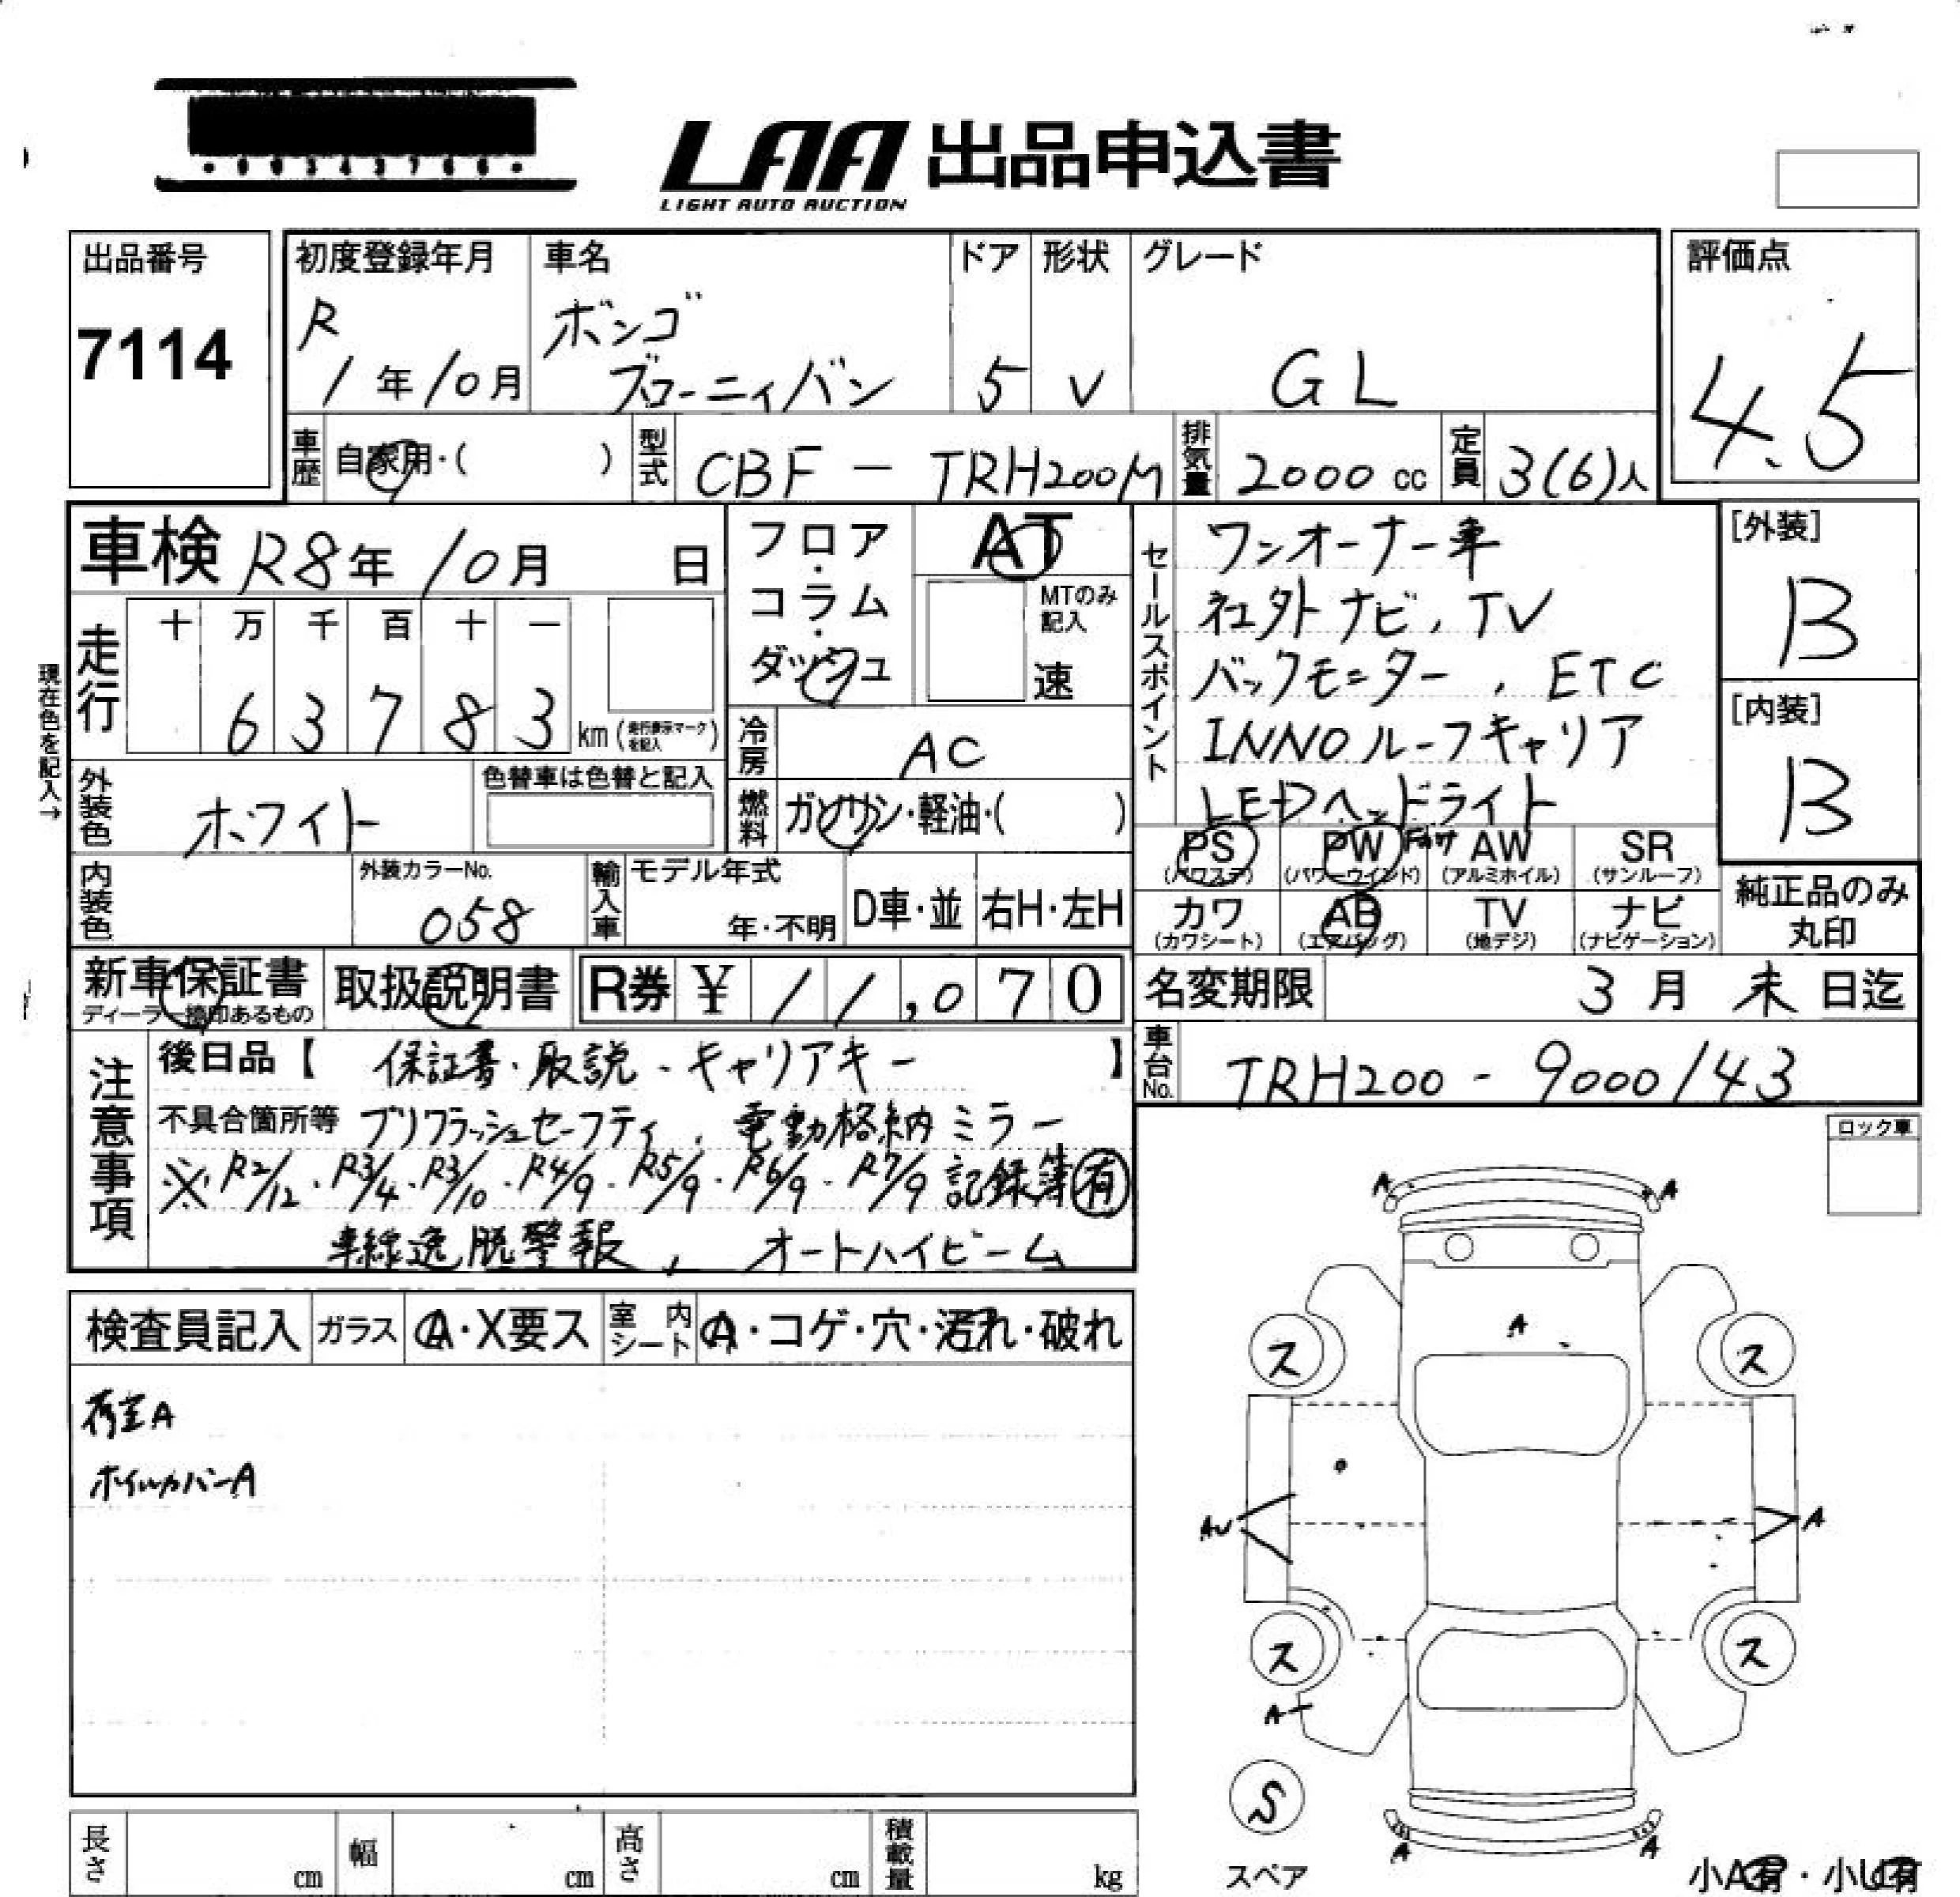 LAA 出品申込書
LIGHT AUTO AUCTION
出品番号
7114
初度登録年月
R
1年10月
車名
ボンゴ
ブローニィバン
ドア
5
形状
V
グレード
GL
評価点
4.5
車歴
自家用・( )
型式
CBF - TRH200M
排気量
2000cc
定員
3(6)人
車検 R8年10月 日
フロア・コラム・ダッシュ
AT
MTのみ記入
速
セールスポイント
ワンオーナー車
社外ナビ、TV
バックモニター、ETC
INNOルーフキャリア
LEDヘッドライト
[外装]
B
[内装]
B
現在色を記入→
走行
十 万 千 百 十 一
6 3 7 8 3 km(走行表示マークを記入)
冷房
AC
外装色
ホワイト
色替車は色替と記入
燃料
ガソリン・軽油・( )
PS (パワステ)
PW (パワーウインド)
AW (アルミホイル)
SR (サンルーフ)
内装色
外装カラーNo.
058
輸入車
モデル年式
年・不明
D車・並
右H・左H
カワ (カワシート)
AB (エアバッグ)
TV (地デジ)
ナビ (ナビゲーション)
純正品のみ
丸印
新車保証書
ディーラー捺印あるもの
取扱説明書
R券 ¥ 11,070
名変期限 3月 末日迄
車台No.
TRH200 - 9000143
注意事項
後日品【 保証書・取説・キャリアキー 】
不具合箇所等 プリクラッシュセーフティ、電動格納ミラー
※R2/12・R3/4・R3/10・R4/9・R5/9・R6/9・R7/9 記録簿有
車線逸脱警報、オートハイビーム
ロック車
検査員記入
ガラス
A・X要ス
室内シート
A・コゲ・穴・汚れ・破れ
荷室A
ホイルカバーA
A A
A
ス ス
AU A
ス ス
A
S
スペア
A A
小A有・小U有
長さ cm
幅 cm
高さ cm
積載量 kg